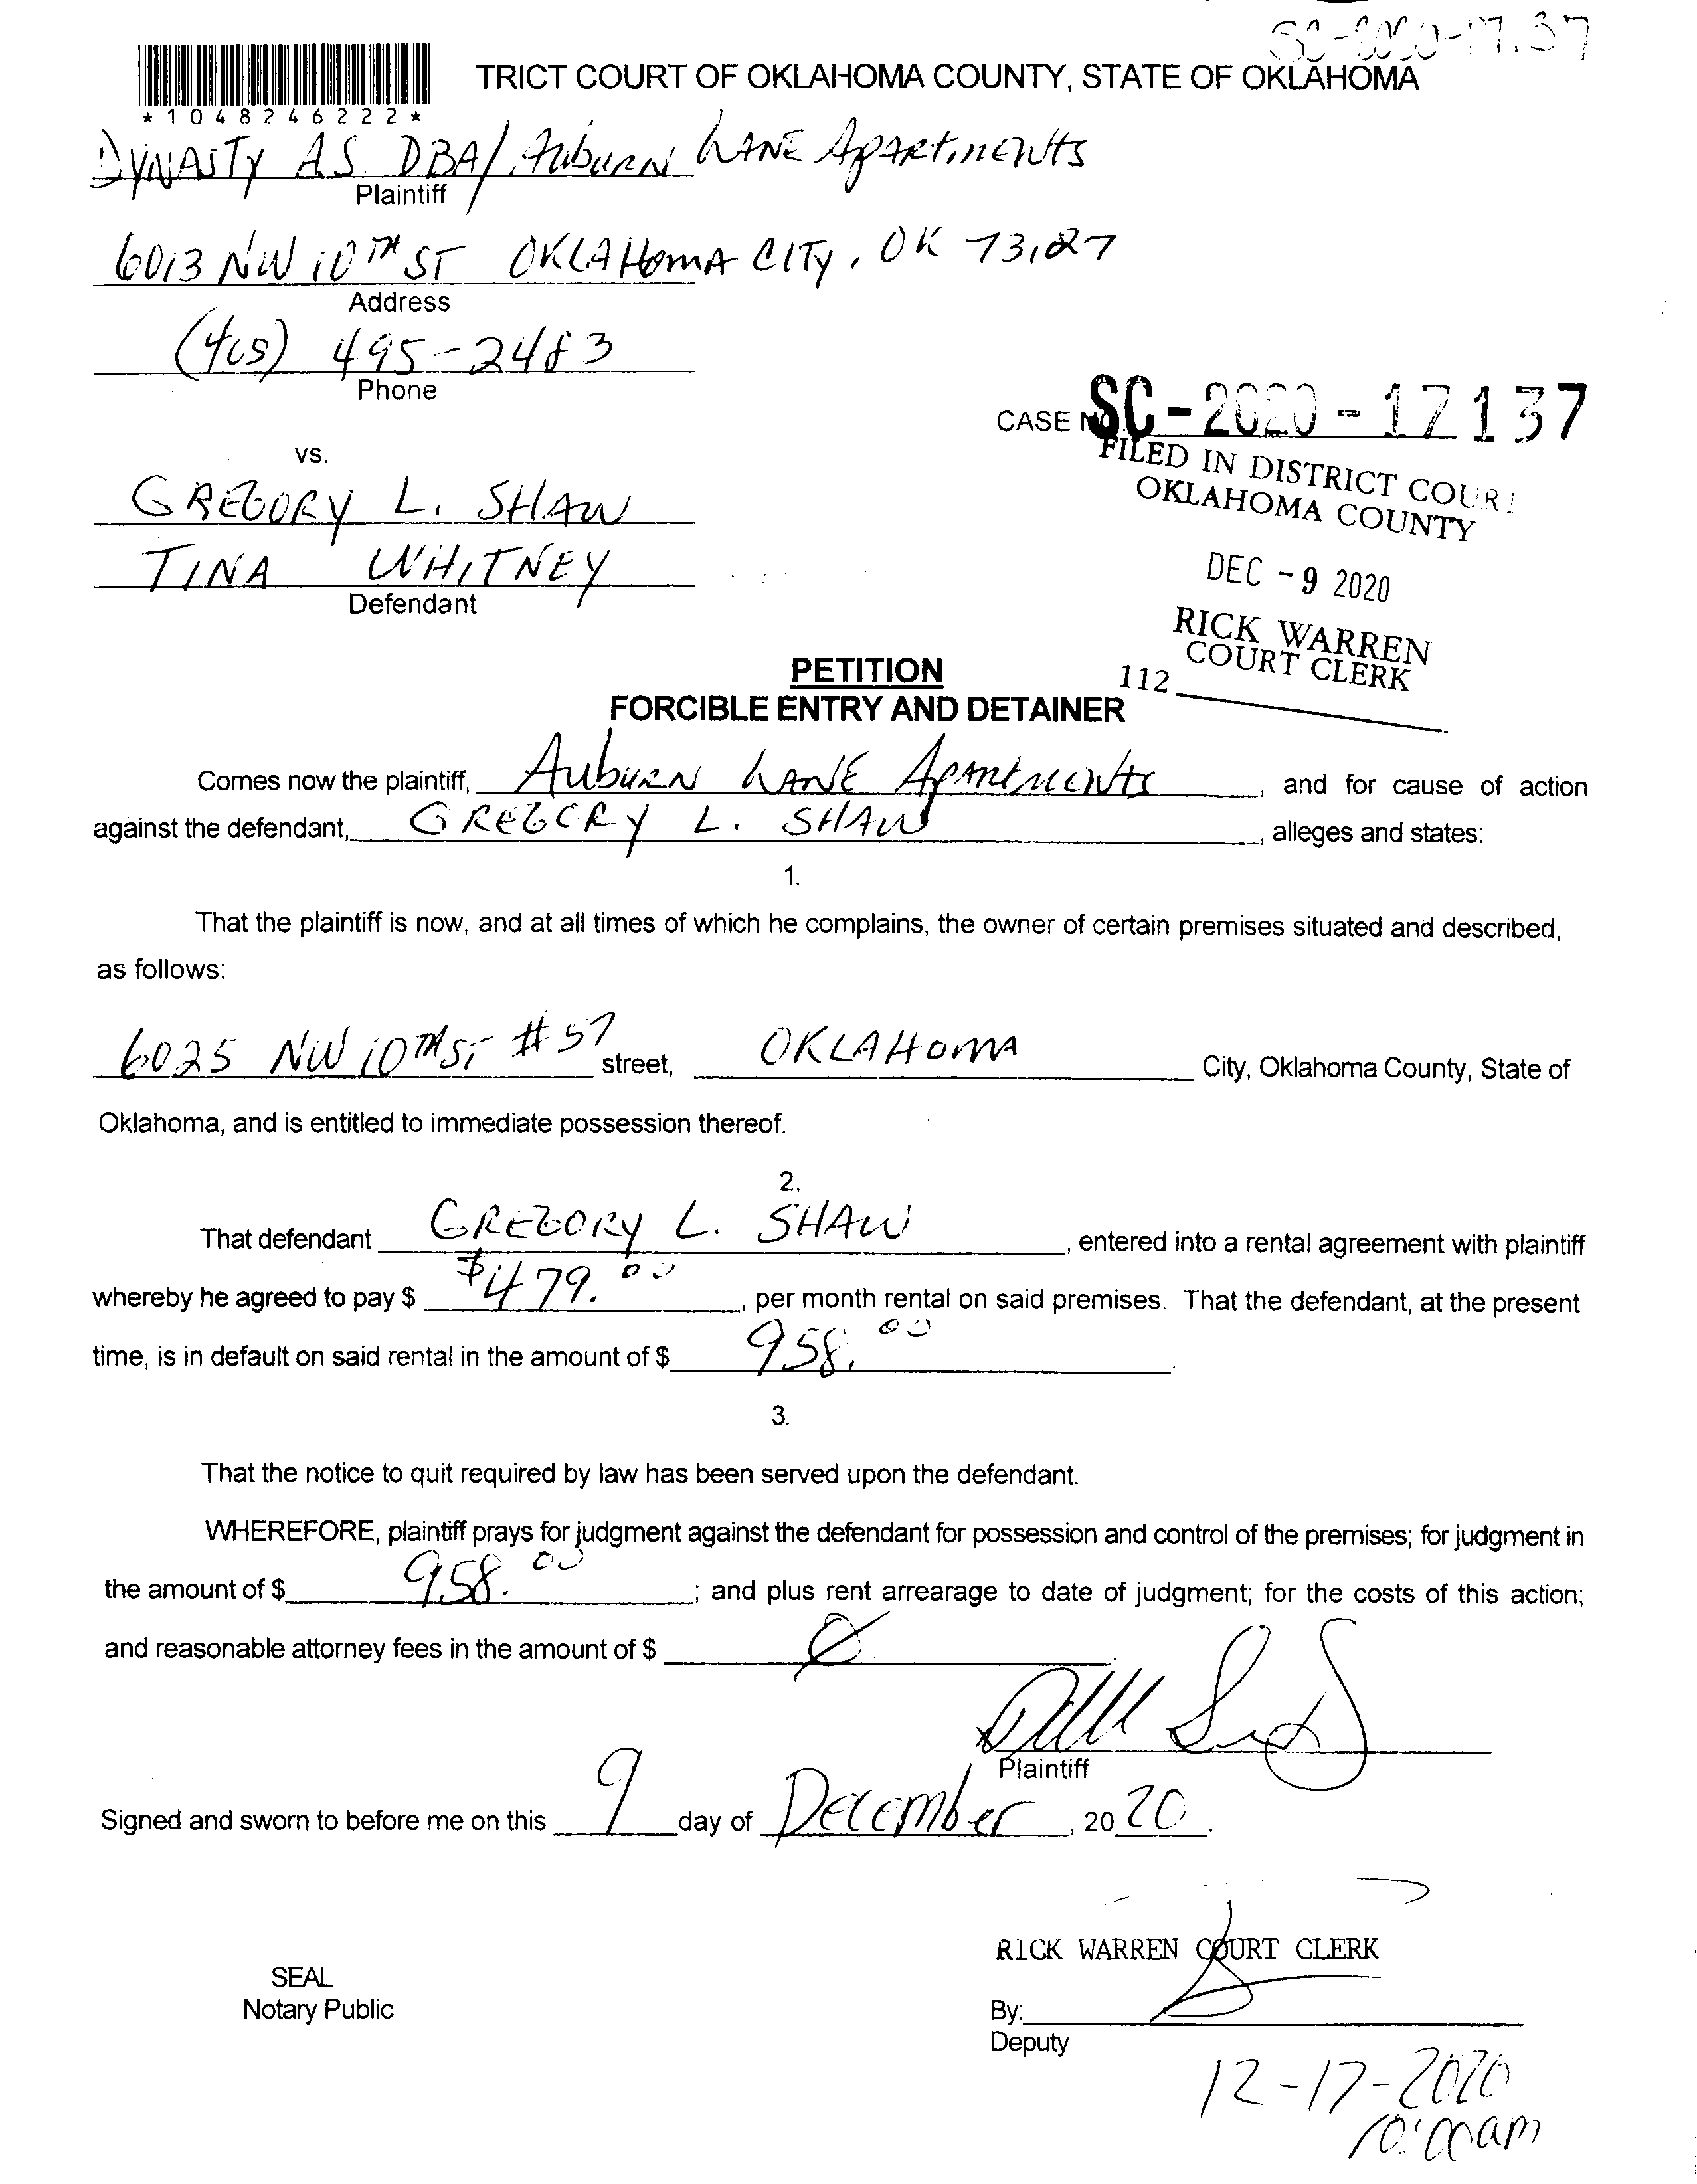 SC-2020-17137
TRICT COURT OF OKLAHOMA COUNTY, STATE OF OKLAHOMA
*1048246222*
DYNASTY AS DBA/ Auburn LANE Apartments
Plaintiff
6013 NW 10TH ST OKLAHOMA CITY, OK 73127
Address
(405) 495-2483
Phone
CASE NO. SC-2020-17137
FILED IN DISTRICT COURT
OKLAHOMA COUNTY
vs.
GREGORY L. SHAW
TINA WHITNEY
Defendant
DEC -9 2020
RICK WARREN
COURT CLERK
112
PETITION
FORCIBLE ENTRY AND DETAINER
Comes now the plaintiff, Auburn LANE Apartments, and for cause of action
against the defendant, GREGORY L. SHAW, alleges and states:
1.
That the plaintiff is now, and at all times of which he complains, the owner of certain premises situated and described,
as follows:
6025 NW 10TH ST #57 street, OKLAHOMA City, Oklahoma County, State of
Oklahoma, and is entitled to immediate possession thereof.
2.
That defendant GREGORY L. SHAW, entered into a rental agreement with plaintiff
whereby he agreed to pay $ $479.00, per month rental on said premises. That the defendant, at the present
time, is in default on said rental in the amount of $ 958.00.
3.
That the notice to quit required by law has been served upon the defendant.
WHEREFORE, plaintiff prays for judgment against the defendant for possession and control of the premises; for judgment in
the amount of $ 958.00; and plus rent arrearage to date of judgment; for the costs of this action;
and reasonable attorney fees in the amount of $ Ø.
Plaintiff
Signed and sworn to before me on this 9 day of December, 2020.
RICK WARREN COURT CLERK
SEAL
Notary Public
By:
Deputy
12-17-2020
10:00am